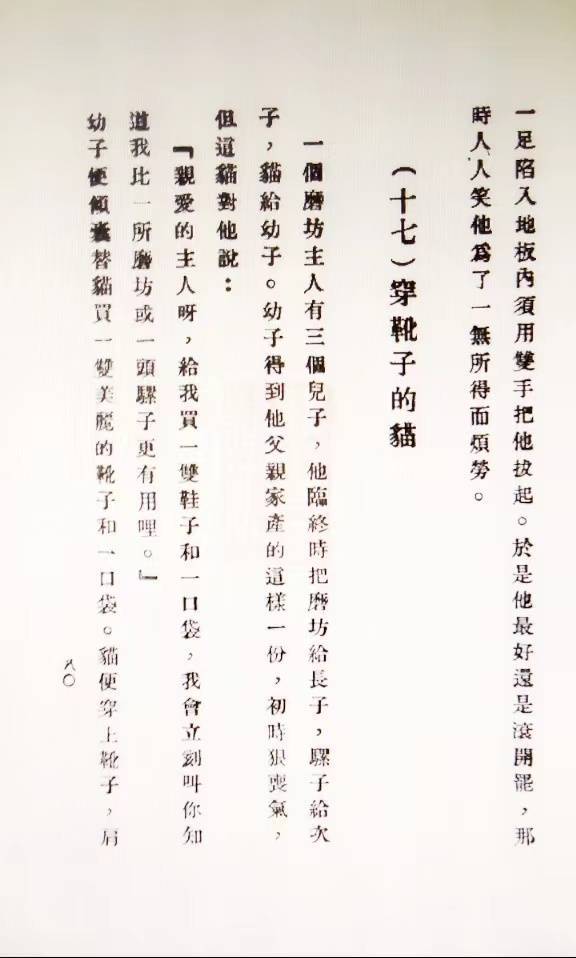 一足陷入地板內須用雙手把他拔起。於是他最好還是滾開罷，那
時人人笑他爲了一無所得而煩勞。
（十七）穿靴子的貓
一個磨坊主人有三個兒子，他臨終時把磨坊給長子，騾子給次
子，貓給幼子。幼子得到他父親家產的這樣一份，初時狠喪氣，
但這貓對他說：
『親愛的主人呀，給我買一雙鞋子和一口袋，我會立刻叫你知
道我比一所磨坊或一頭騾子更有用哩。』
幼子便傾囊替貓買一雙美麗的靴子和一口袋。貓便穿上靴子，肩
八〇